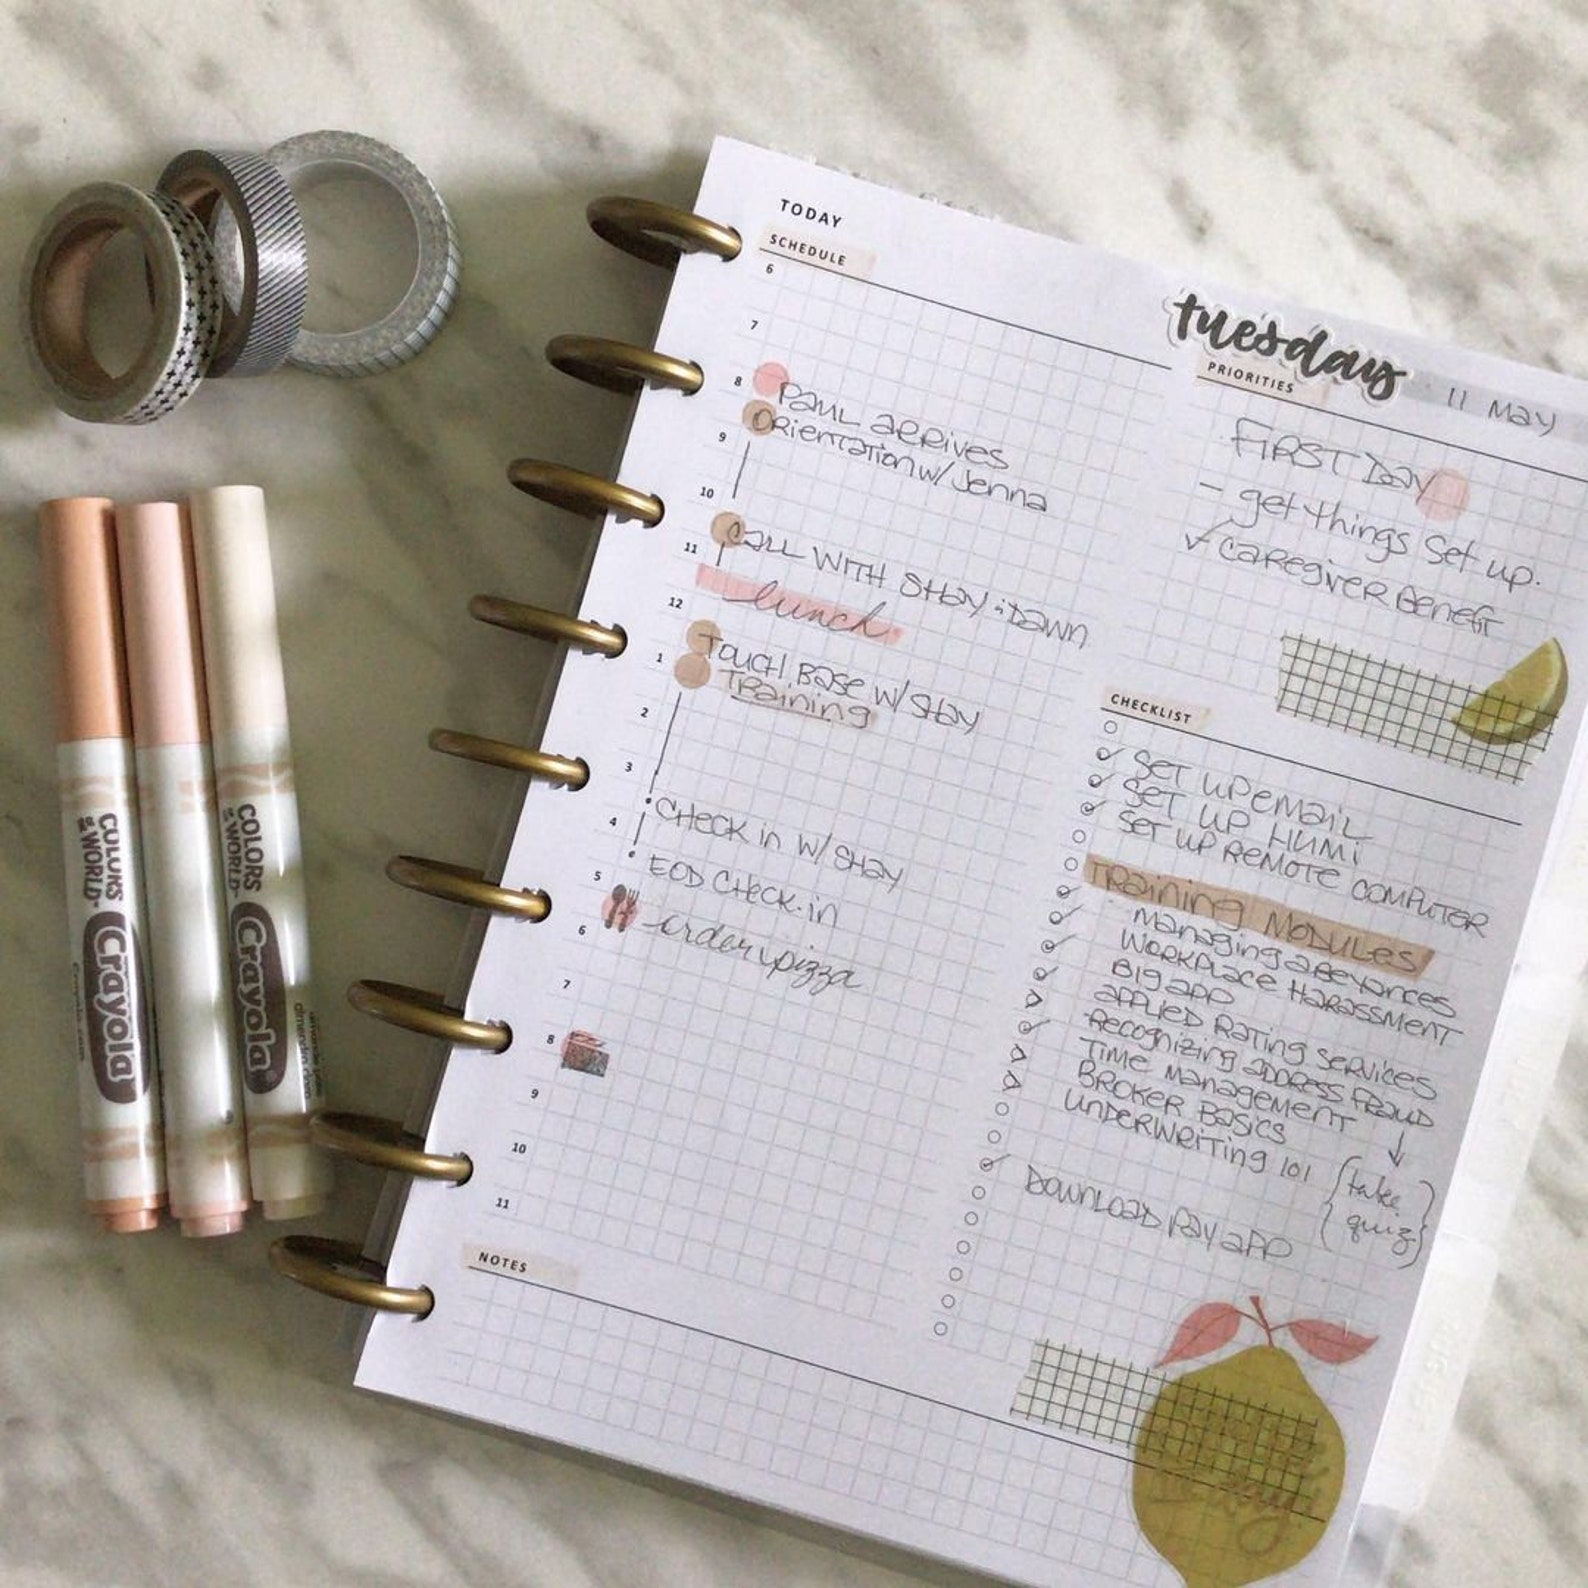 TODAY
SCHEDULE
6
7
8
PAUL ARRIVES
ORIENTATION W/ Jenna
9
10
CALL WITH SHAY & DAWN
11
lunch
12
TOUCH BASE W/ SHAY
1
TRAINING
2
3
CHECK in W/ SHAY
4
EOD CHECK-in
5
order pizza
6
7
8
9
10
11
NOTES
tuesday
11 MAY
PRIORITIES
FIRST DAY
- get things set up.
✓ CAREGIVER BENEFIT
CHECKLIST
SET UP EMAIL
SET UP HUMI
SET UP REMOTE COMPUTER
TRAINING MODULES
MANAGING ABEYANCES
WORKPLACE HARASSMENT
BIG APP
APPLIED RATING SERVICES
RECOGNIZING ADDRESS FRAUD
TIME MANAGEMENT
BROKER BASICS
UNDERWRITING 101
{take
quiz}
DOWNLOAD PAY APP
COLORS
OF THE
WORLD
Crayola
Crayola.com
COLORS
OF THE
WORLD
Crayola